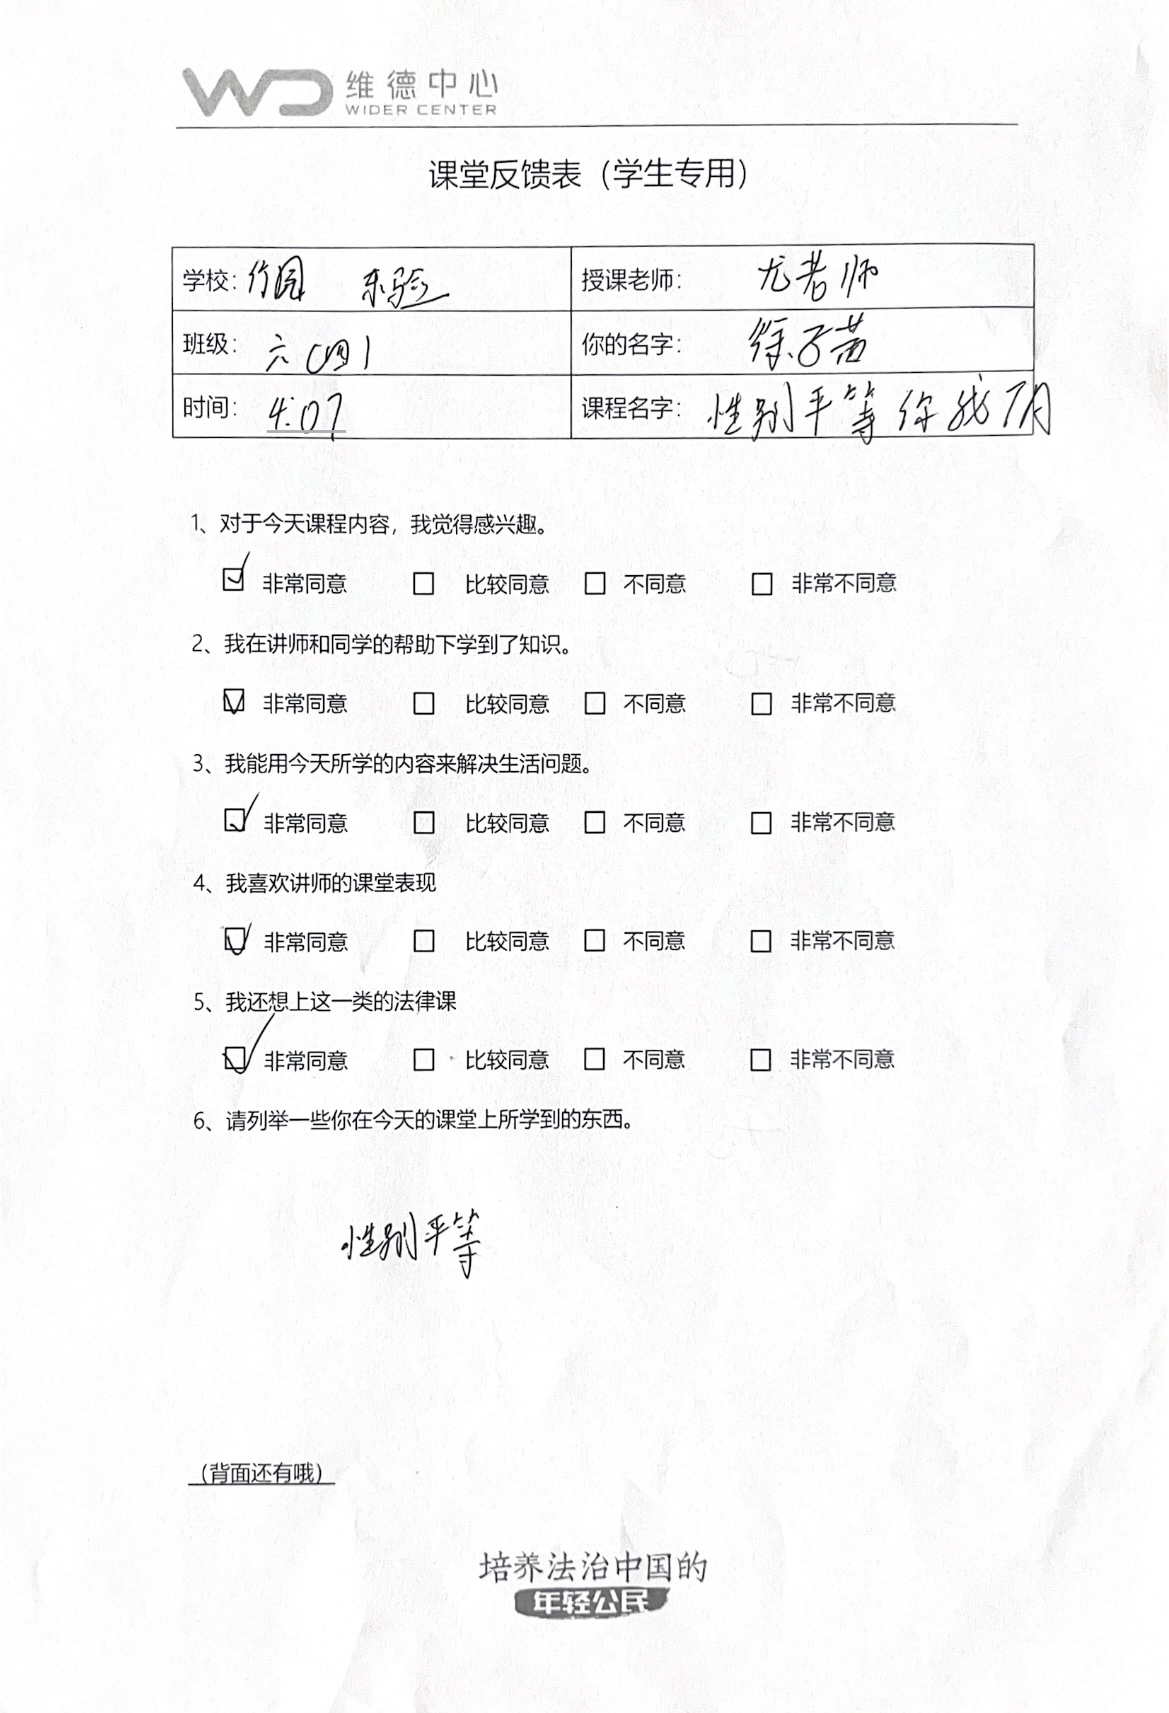 WD 维德中心
WIDER CENTER
课堂反馈表（学生专用）
学校：竹园 实验 授课老师：尤老师
班级：六(四) 你的名字：徐子茜
时间：4:07 课程名字：性别平等你我
1、对于今天课程内容，我觉得感兴趣。
非常同意 比较同意 不同意 非常不同意
2、我在讲师和同学的帮助下学到了知识。
非常同意 比较同意 不同意 非常不同意
3、我能用今天所学的内容来解决生活问题。
非常同意 比较同意 不同意 非常不同意
4、我喜欢讲师的课堂表现
非常同意 比较同意 不同意 非常不同意
5、我还想上这一类的法律课
非常同意 比较同意 不同意 非常不同意
6、请列举一些你在今天的课堂上所学到的东西。
性别平等
（背面还有哦）
培养法治中国的
年轻公民